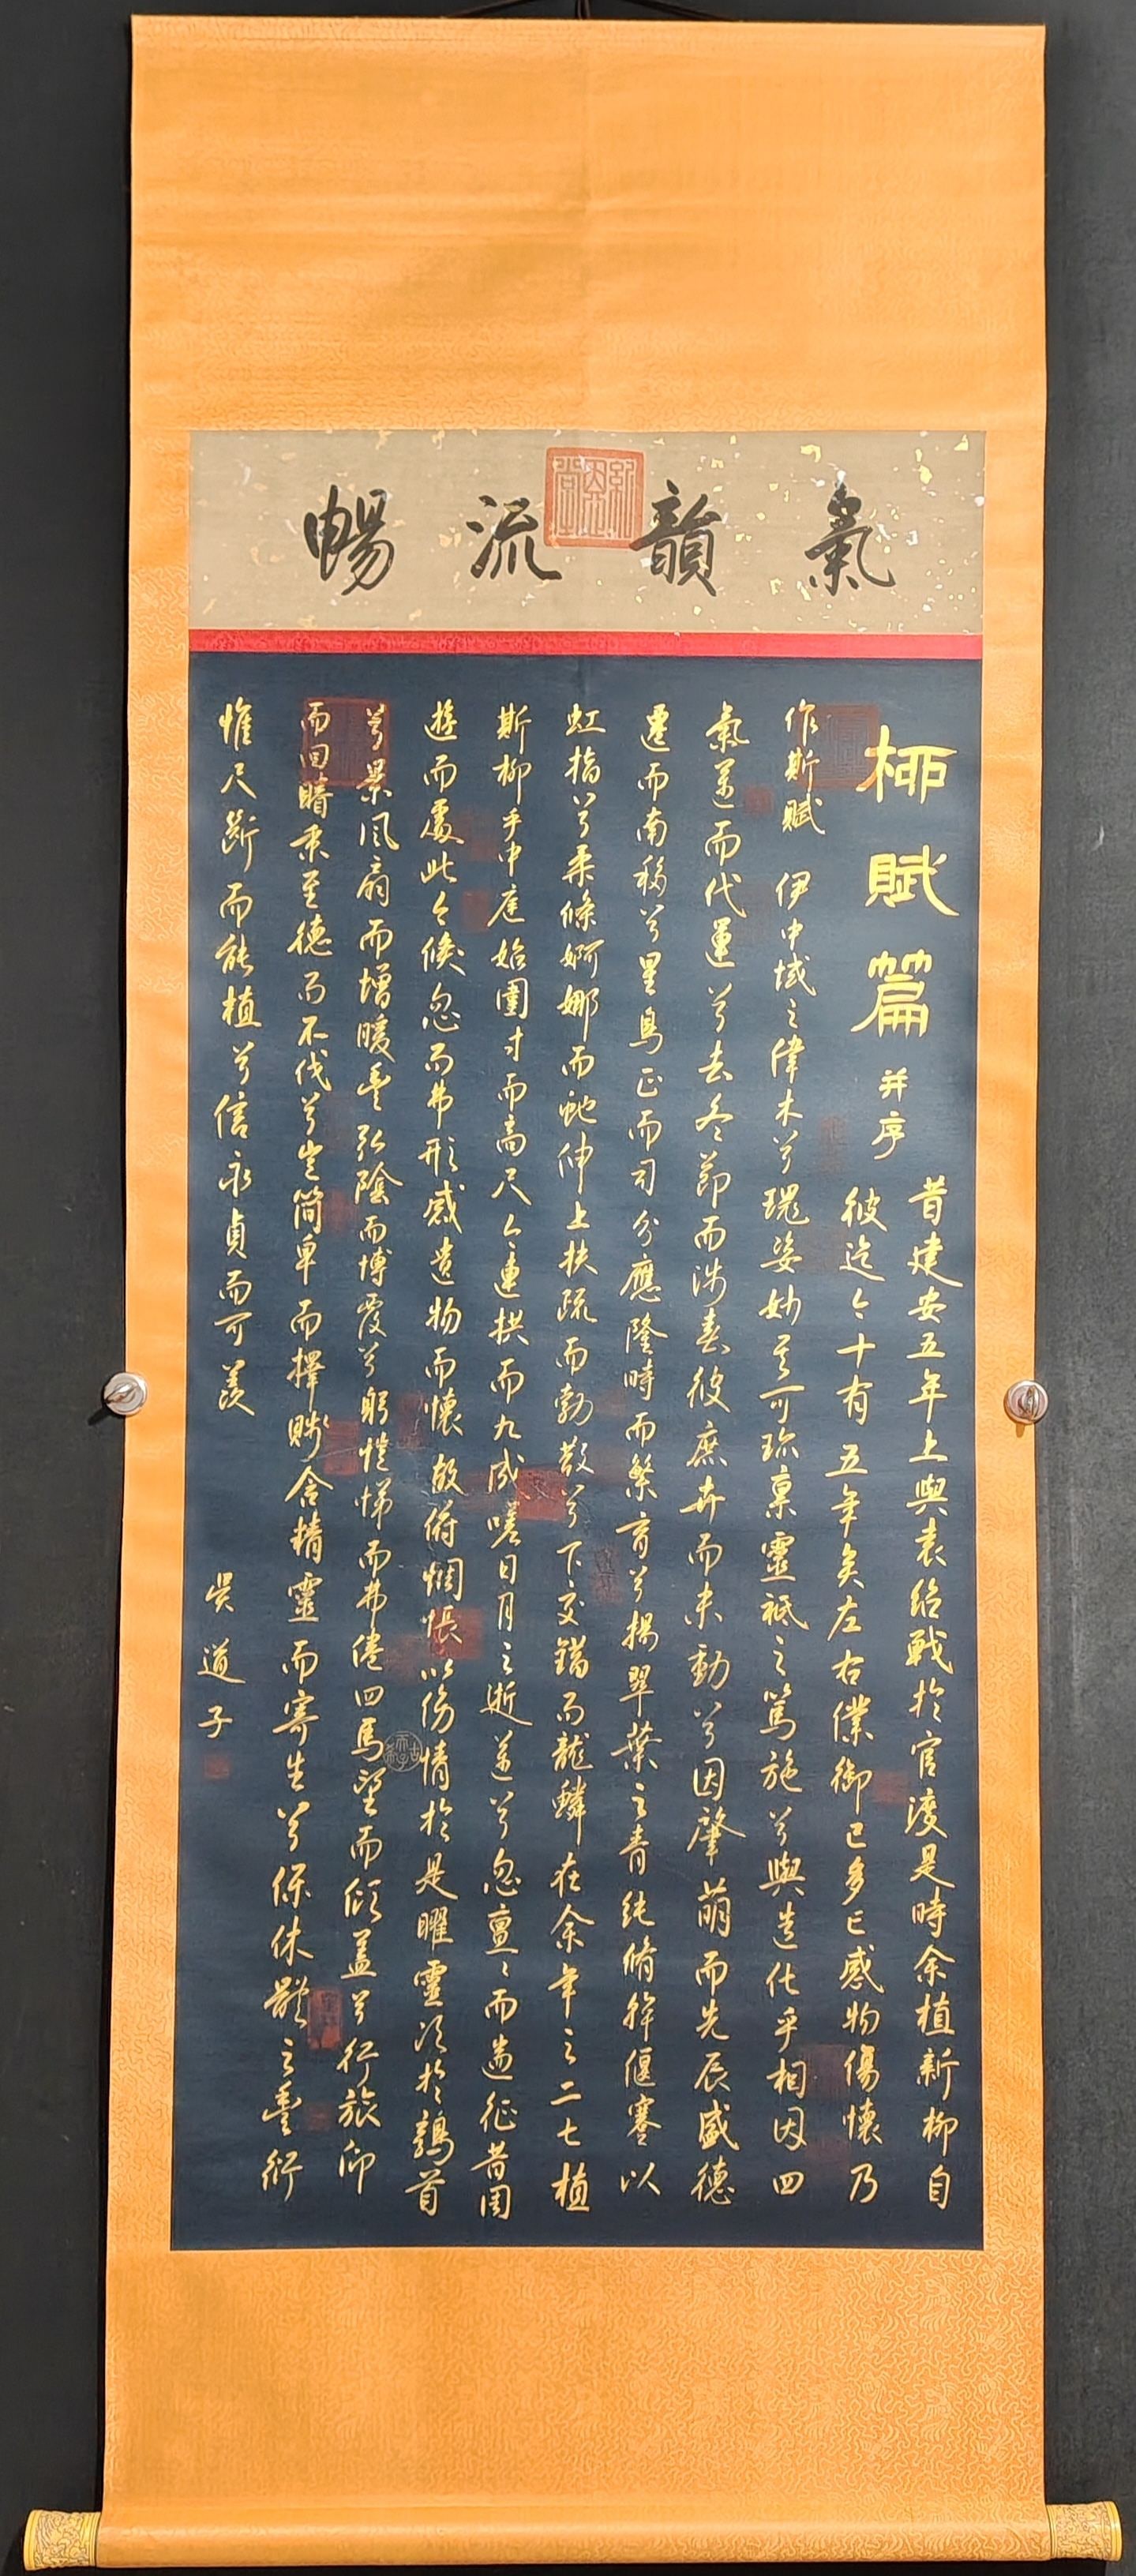 氣韻流暢
柳賦篇 并序
昔建安五年上與袁紹戰於官渡是時余植新柳自
彼迄今十有五年矣左右僕御已多亡感物傷懷乃
作斯賦 伊中域之偉木兮瑰姿妙其可珍稟靈祗之篤施兮與造化乎相因四
氣邁而代運兮去冬節而涉春彼庶卉而未動兮因肇萌而先辰盛德
遷而南移兮星鳥正而司分應隆時而繁育兮揚翠葉之青純脩幹偃蹇以
虹指兮柔條婀娜而虵伸上扶疏而勃散兮下交錯而龍鱗在余年之二七植
斯柳乎中庭始圍寸而高尺今連拱而九成嗟日月之逝邁兮忽亹亹而遄征昔周
遊而處此今倏忽而弗形感遺物而懷故俯惆悵以傷情於是曜靈次於鶉首
兮景风扇而增暖豐弘陰而博覆兮躬愷悌而弗倦四馬望而傾蓋兮行旅仰
而回睛秉至德而不伐兮豈简卑而擇賤含精靈而寄生兮保休體之豐衍
惟尺斷而能植兮信永貞而可羨
吳道子